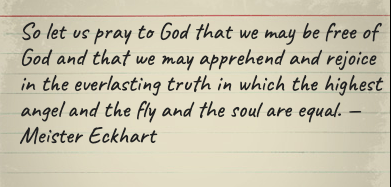 So let us pray to God that we may be free of
God and that we may apprehend and rejoice
in the everlasting truth in which the highest
angel and the fly and the soul are equal. —
Meister Eckhart